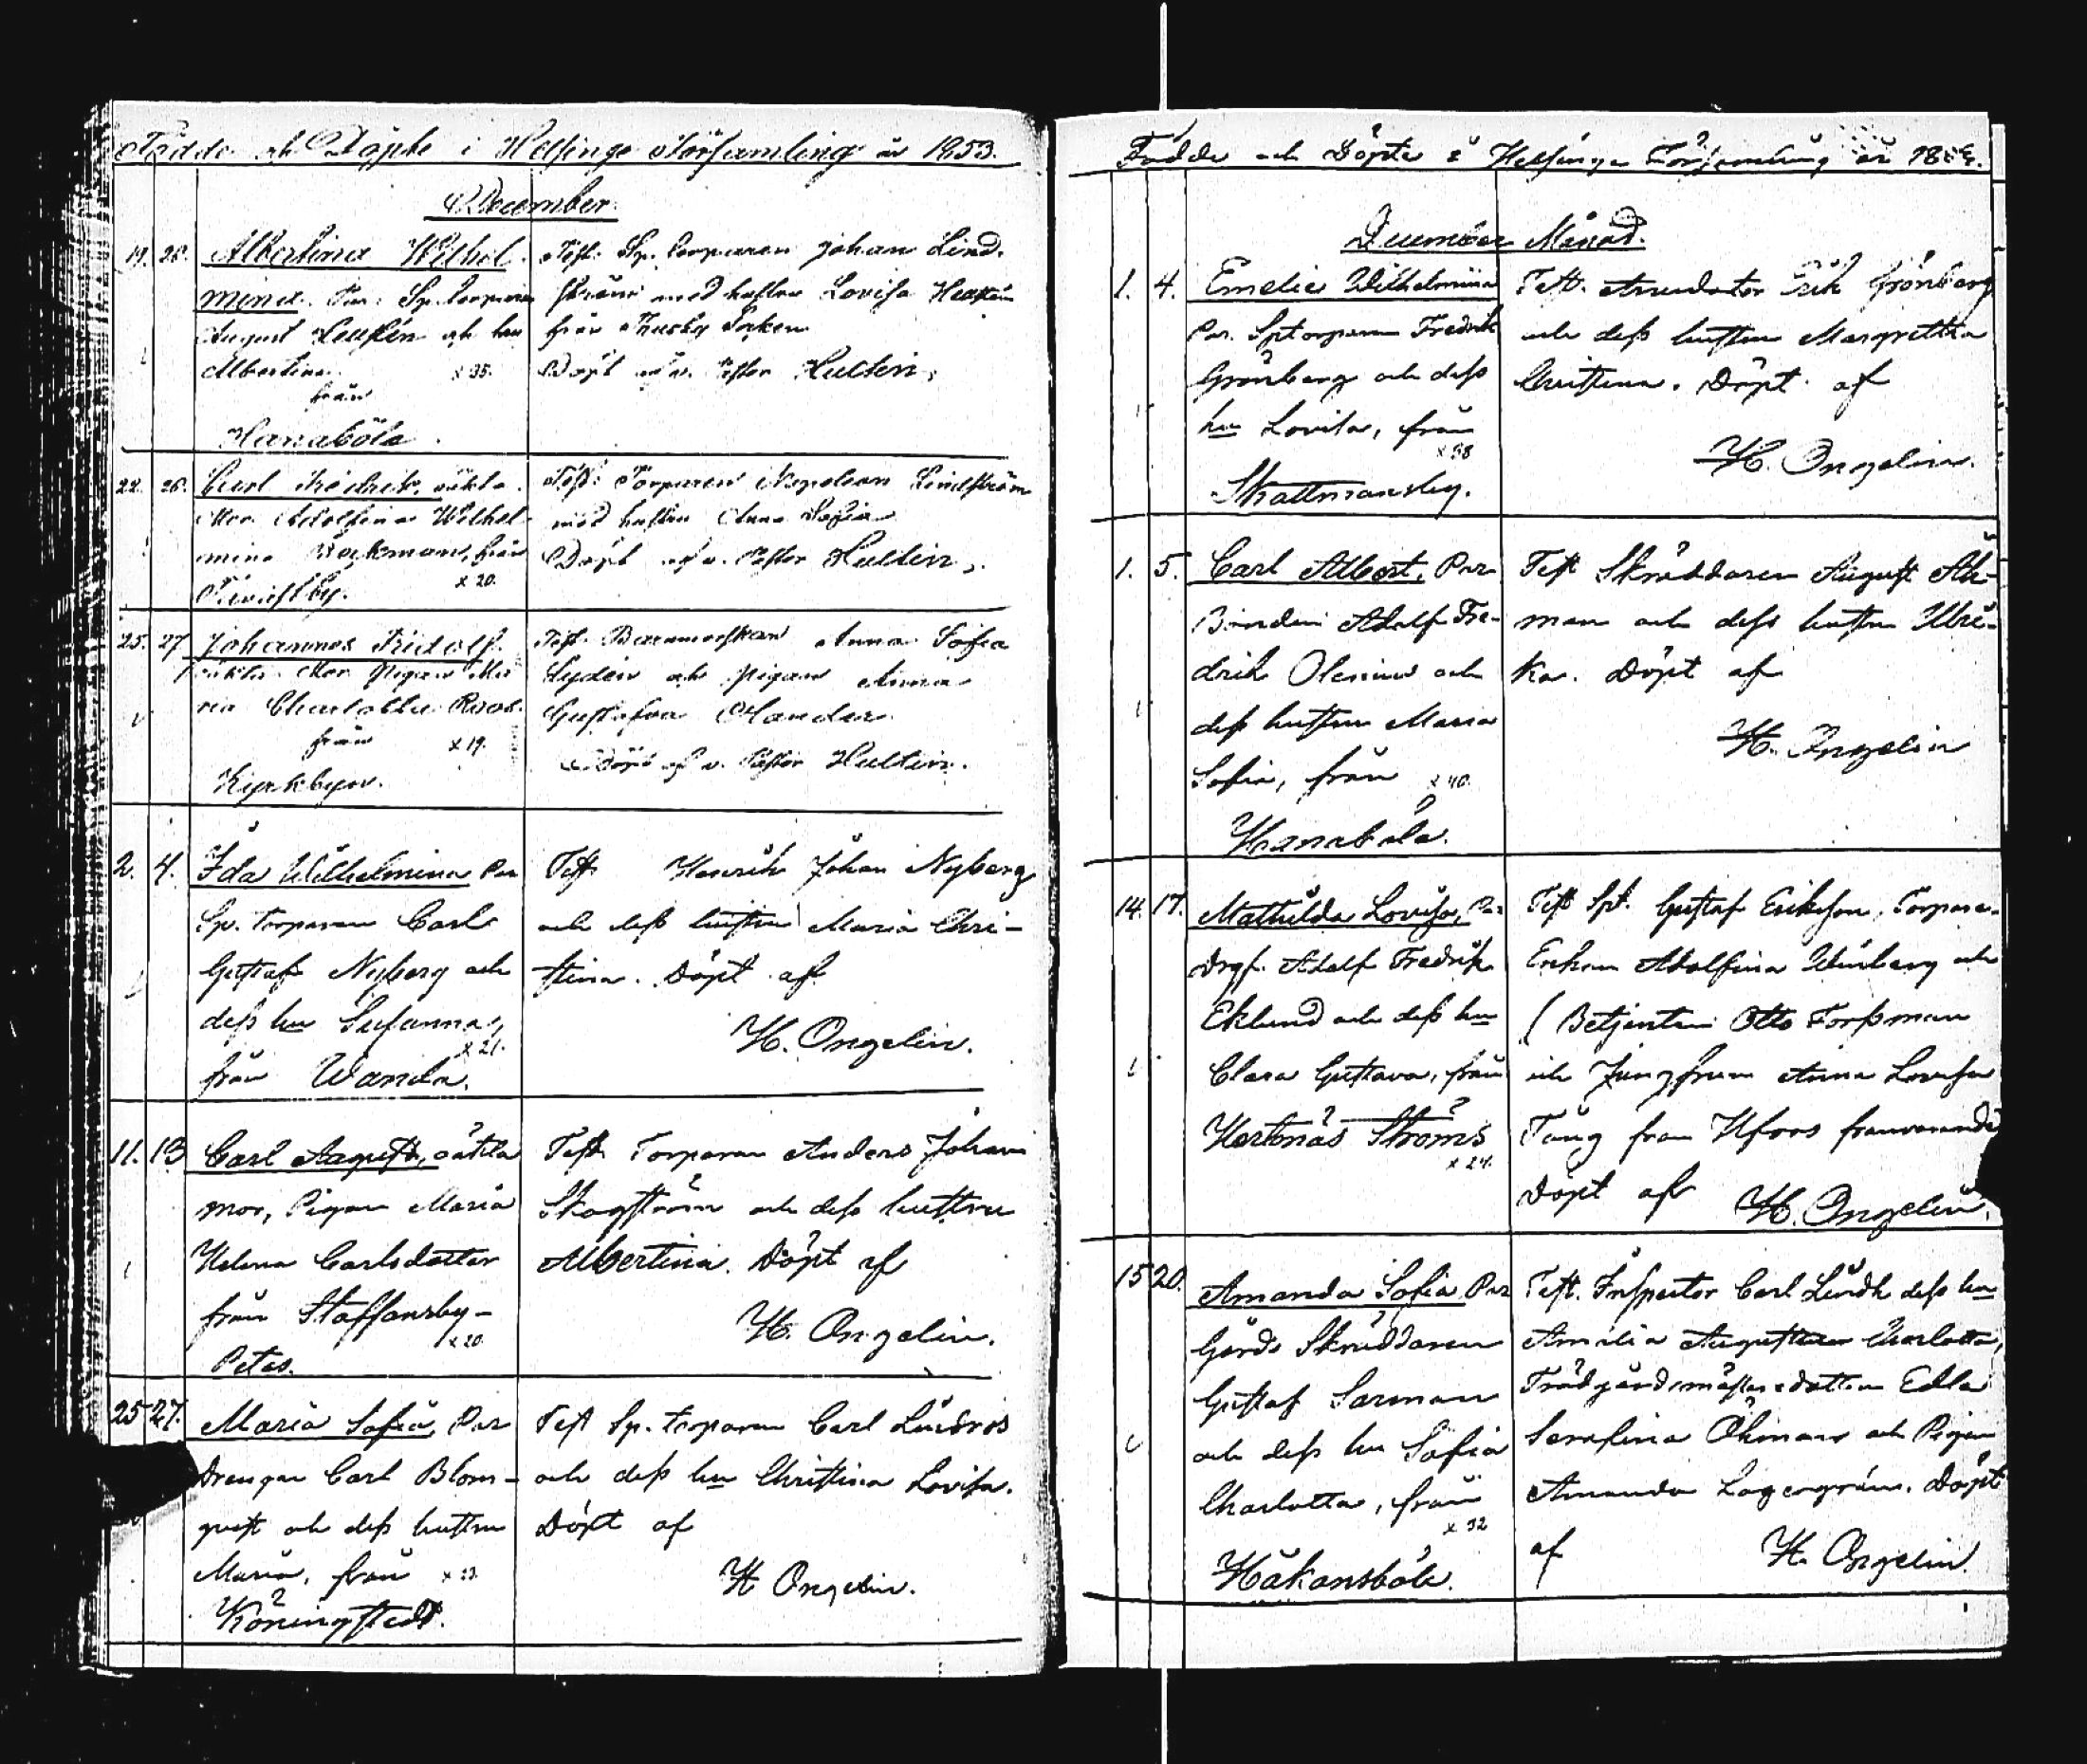 Födde och Döpte i Helsinge Församling år 1853.
December
19. 26. Albertina Wilhel-
mina. Par: Sp. torparen
August Leuhén och hu
Albertina x 35.
från
Hanaböle.
Test: Sp. torparen Johan Lind-
ström med hustru Lovisa
från Thusby Socken
Döpt af v. Pastor Hultin.
22. 26. Carl Fredrik, oäkta.
Mor Adolfina Wilhel-
mina Backman, från
x 20.
Test: Torparen Napolean Lindström
med hustru Anna Sofia
Döpt af v. Pastor Hultin.
25. 27. Johannes Fridolf.
oäkta. Mor Pigan Ma-
ria Charlotta Roos.
från x 19.
Kyrkbyn.
Test: Barnmorskan Anna Sofia
Lydén och pigan Anna
Gustafva Olander.
Döpt af v. Pastor Hultin.
2. 4. Ida Wilhelmina Par
Sp. torparen Carl
Gustaf Nyberg och
dess hu Susanna,
x 21.
från Wanda.
Test Henrik Johan Nyberg
och dess hustru Maria Chri-
stina. Döpt af
H. Ongelin.
11. 13 Carl August, oäkta
mor, Pigan Maria
Helena Carlsdotter
från Staffansby-
x 20
Petas.
Test Torparen Anders Johan
Skogström och dess hustru
Albertina. Döpt af
H. Ongelin.
25 27. Maria Sofia, Par
Drengen Carl Blom-
qvist och dess hustru
Maria, från x 23
Köningstedt.
Test Sp. torparen Carl Lindros
och dess hu Christina Lovisa.
Döpt af
H Ongelin.
Födde och Döpte i Helsinge Församling år
December Månad.
1. 4. Emelie Wilhelmina
Par. Sptorparen Fredrik
Grönberg och dess
hu Lovisa, från
x 38
Skattmansby.
Test. Arrendator Erik Grönberg
och dess hustru Margretha
Christina. Döpt af
H. Ongelin.
1. 5. Carl Albert, Par
Bonden Adolf Fre-
drik Olenius och
dess hustru Maria
Sofia, från x 40.
Hanaböle.
Test Skräddaren August Åh-
man och dess hustru Ulri-
ka. Döpt af
H. Ongelin
14. 17. Mathilda Lovisa, Par
Drg. Adolf Fredrik
Eklund och dess hu
Clara Gustava, från
Hertonäs Ströms
x 24.
Test Spt. Gustaf Erikson, Torpare-
Enkan Adolfina Winberg och
( Betjenten Otto Forsman
och Jungfrun Anna Lovisa
Tång fran Hfors franvarande
Döpt af H. Ongelin.
15 20. Amanda Sofia Par
Gårds Skräddaren
Gustaf Sarman
och dess hu Sofia
Charlotta, från
x 32
Håkansböle.
Test. Inspector Carl Lindh dess hu
Amalia Augusta Charlotta,
Trädgårdsmästaredottern Edla
Serafina Öhman och Pigan
Amanda Lagergrén. Döpt
af H. Ongelin.